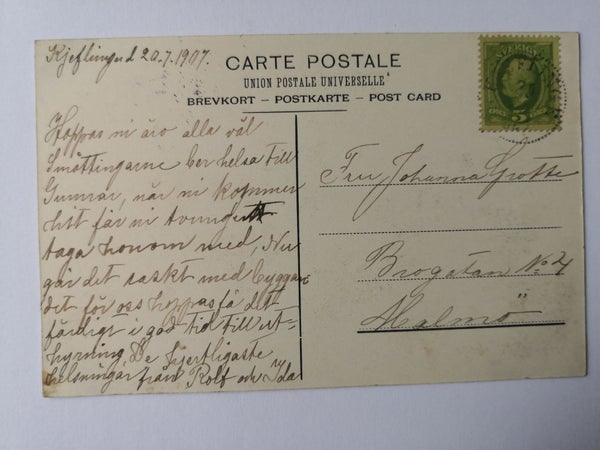 Kjeflinge d 20.7.1907.
CARTE POSTALE
UNION POSTALE UNIVERSELLE
BREVKORT – POSTKARTE – POST CARD
SVERIGE
5
Hoppas ni äro alla väl
Småttingarne ber helsa till
Gunnar, när ni kommer
hit får ni
taga honom med, Nu
går det raskt med byggan
det för oss hoppas få det
färdigt i god tid till ut-
hyrning. De hjertligaste
helsningar från Rolf och Ida
Fru Johanna Grotte
Brogatan No 4
Malmö